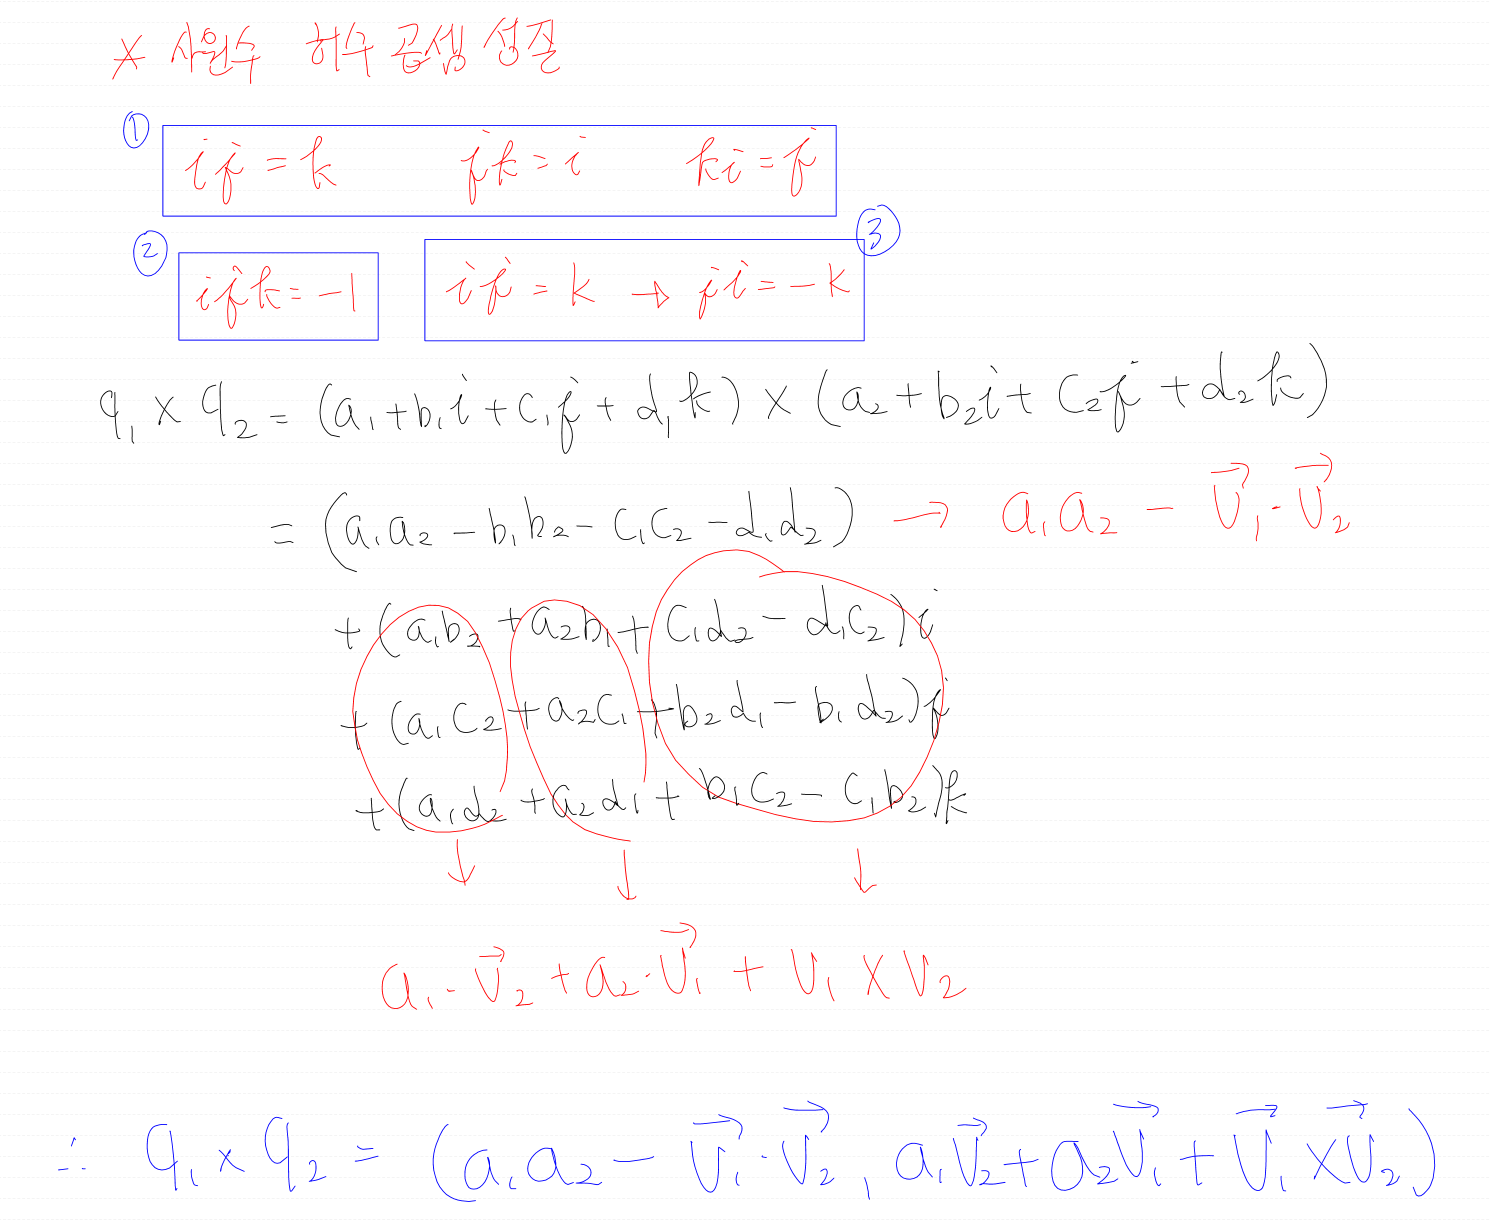 * 사원수 허수 곱셈 성질
① ij = k jk = i ki = j
② ijk = -1 ③ ij = k → ji = -k
q₁ × q₂ = (a₁+b₁i+c₁j+d₁k) × (a₂+b₂i+c₂j+d₂k)
= (a₁a₂ - b₁b₂ - c₁c₂ - d₁d₂) → a₁a₂ - v⃗₁·v⃗₂
+ (a₁b₂ + a₂b₁ + c₁d₂ - d₁c₂)i
+ (a₁c₂ + a₂c₁ + b₂d₁ - b₁d₂)j
+ (a₁d₂ + a₂d₁ + b₁c₂ - c₁b₂)k
a₁·v⃗₂ + a₂·v⃗₁ + v₁ × v₂
∴ q₁ × q₂ = (a₁a₂ - v⃗₁·v⃗₂, a₁v⃗₂ + a₂v⃗₁ + v⃗₁ × v⃗₂)